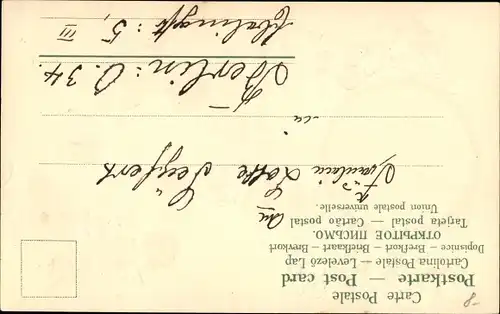 Carte Postale
Postkarte — Post card
Cartolina Postale — Levelező Lap
Dopisnice — Brefkort — Briefkaart — Brevkort
ОТКРЫТОЕ ПИСЬМО.
Tarjeta postal — Cartão postal
Union postale universelle.
An
Fräulein Lotte Seyffert
in
Berlin: O. 34.
: 5, III
8-